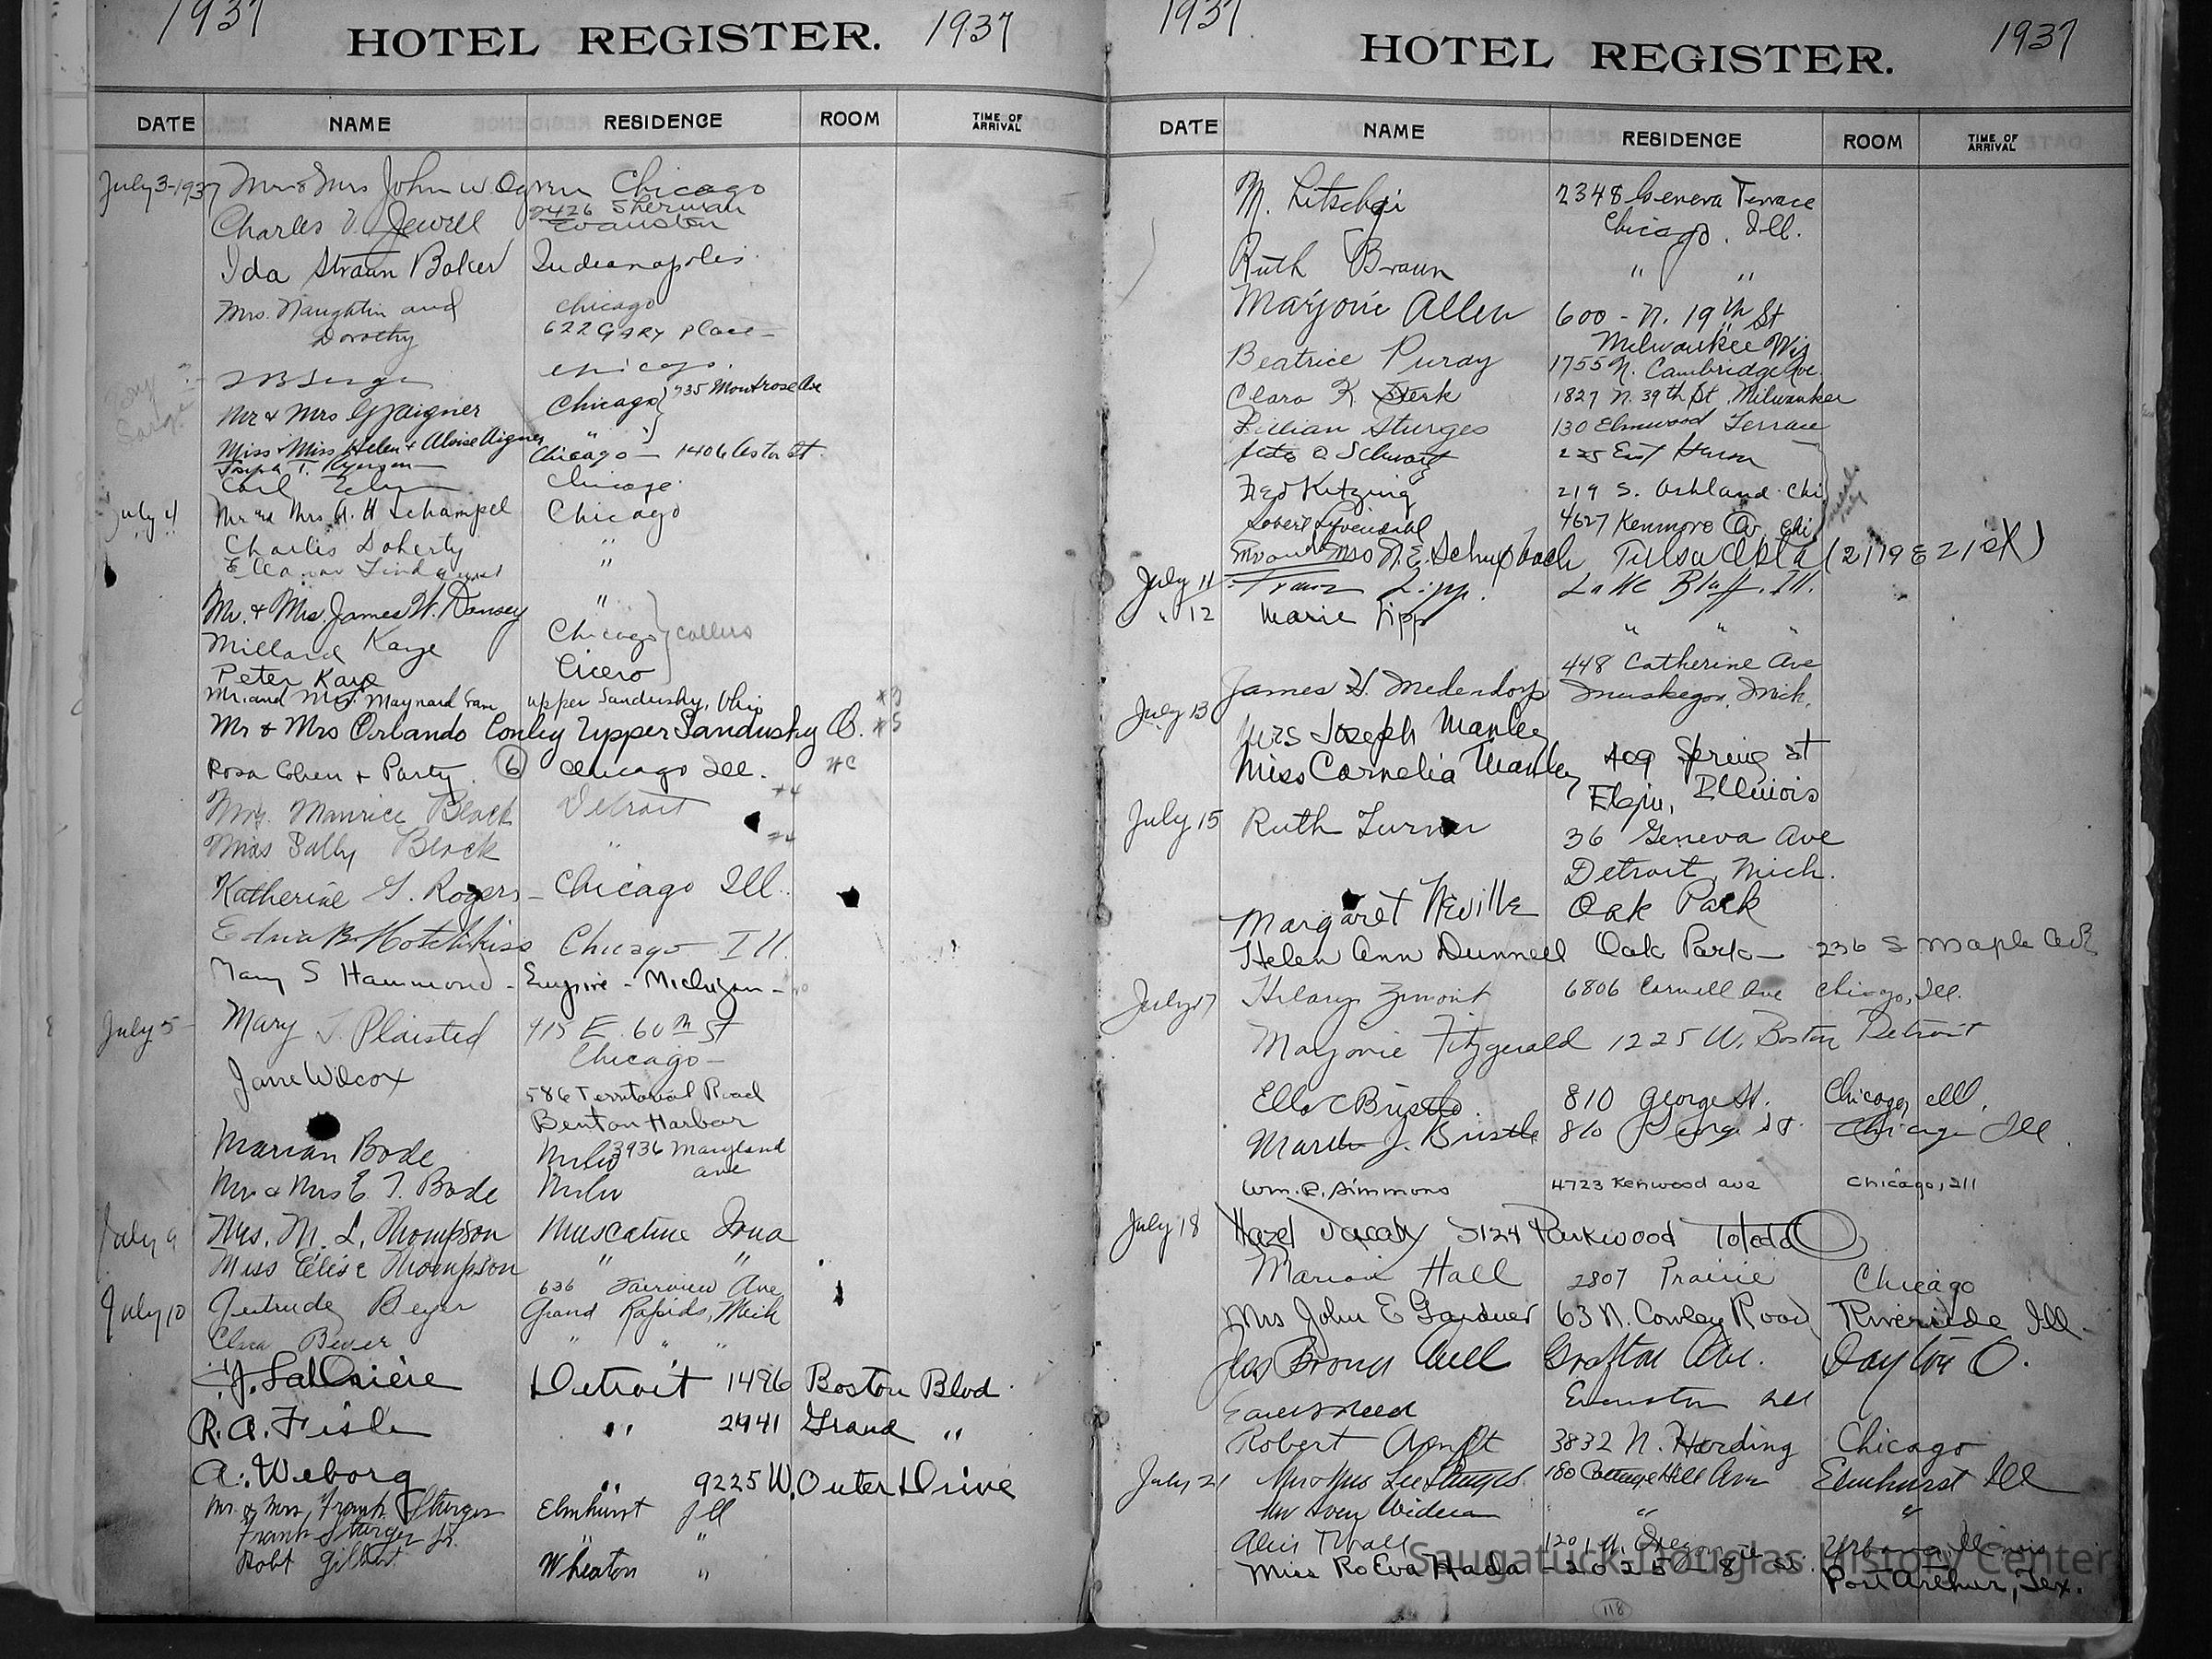 1937
HOTEL REGISTER. 1937
DATE NAME RESIDENCE ROOM TIME OF ARRIVAL
July 3-1937 Mr & Mrs John W Ogren Chicago
Charles V. Jewell 2426 Sherman
Evanston
Ida Straun Baker Indianapolis
Mrs. Naughtin and Chicago
Dorothy 622 Gary Place
Chicago
Mr & Mrs G Aigner Chicago 735 Montrose Ave
Miss & Miss Helen & Aloise Aigner "
Joseph T. Ryerson Chicago 1406 Astor St
Carl Chicago
July 4 Mr and Mrs A. H Schampel Chicago
Charles Doherty "
Eleanor Lindquist "
Mr. & Mrs. James W. Dansey "
Millard Kaye Chicago callers
Peter Kaye Cicero
Mr. and Mrs. Maynard Gam upper Sandusky, Ohio #3
Mr & Mrs Orlando Conley Upper Sandusky O. #5
Rosa Cohen & Party (6) Chicago Ill. #C
Mrs. Maurice Black Detroit #4
Miss Sally Black " #4
Katherine G. Rogers - Chicago Ill.
Edna B. Hotchkiss Chicago Ill.
Mary S Hammond - Empire - Michigan -
July 5 - Mary T. Plaisted 915 E. 60th St
Chicago -
Jane Wilcox 586 Territorial Road
Benton Harbor
Marian Bode Milw 3936 Maryland
ave
Mr & Mrs E T. Bode Milw
July 9 Mrs. M. L. Thompson Muscatine Iowa
Miss Elise Thompson " "
636 Fairview Ave
July 10 Gertrude Beyer Grand Rapids, Mich
Clara Beyer " " "
Detroit 1496 Boston Blvd.
R. A. Fisle " 2941 Grand "
A. Weborg " 9225 W. Outer Drive
Mr. & Mrs. Frank Sturges Elmhurst Ill
Frank Sturges Jr. " "
Robt Gilbert Wheaton "
1937
HOTEL REGISTER. 1937
DATE NAME RESIDENCE ROOM TIME OF ARRIVAL
M. Litschgi 2348 Geneva Terrace
Chicago, Ill.
Ruth Braun " "
Marjorie Allen 600 - N. 19th St
Milwaukee Wis
Beatrice Purdy 1755 N. Cambridge Ave.
Clara K. Sterk 1827 N. 39th St. Milwaukee
Lillian Sturges 130 Elmwood Terrace
Schwartz 225 East Huron
Fred Kitzing 219 S. Ashland Chi
Robert 4627 Kenmore Av. Chi
Mr and Mrs N. E. Schupbach Tulsa Okla (2119 E 21st)
July 11 Franz Lipp. Lake Bluff. Ill.
" 12 Marie Lipp " " "
448 Catherine Ave
James H. Medendorp Muskegon, Mich.
July 13 Mrs Joseph Manley
Miss Cornelia Manley 409 Spring St
Elgin, Illinois
July 15 Ruth Turner 36 Geneva Ave
Detroit, Mich.
Margaret Neville Oak Park
Helen Ann Dunnell Oak Park - 236 S Maple Ave
July 17 Hilary Zmont 6806 Cornell Ave Chicago, Ill.
Marjorie Fitzgerald 1225 W. Boston Detroit
Ella C Bristle 810 George St. Chicago, Ill.
Martha J. Bristle 810 George St. Chicago Ill.
Wm. R. Simmons 4723 Kenwood Ave Chicago, Ill
July 18 Hazel 3124 Parkwood Toledo O
Marion Hall 2807 Prairie Chicago
Mrs John E Gardner 63 N. Cowley Road Riverside Ill.
Grafton Ave. Dayton O.
Evanston Ill
Robert Arndt 3832 N. Harding Chicago
July 21 Mr & Mrs Lee Sturges 180 Cottage Hill Ave Elmhurst Ill
Mr Sven Widen " "
Alice Thrall 1201 W. Oregon Urbana, Illinois
Miss RoEva Hada - 2025 - 8 St. Port Arthur, Tex.
118
Saugatuck-Douglas History Center